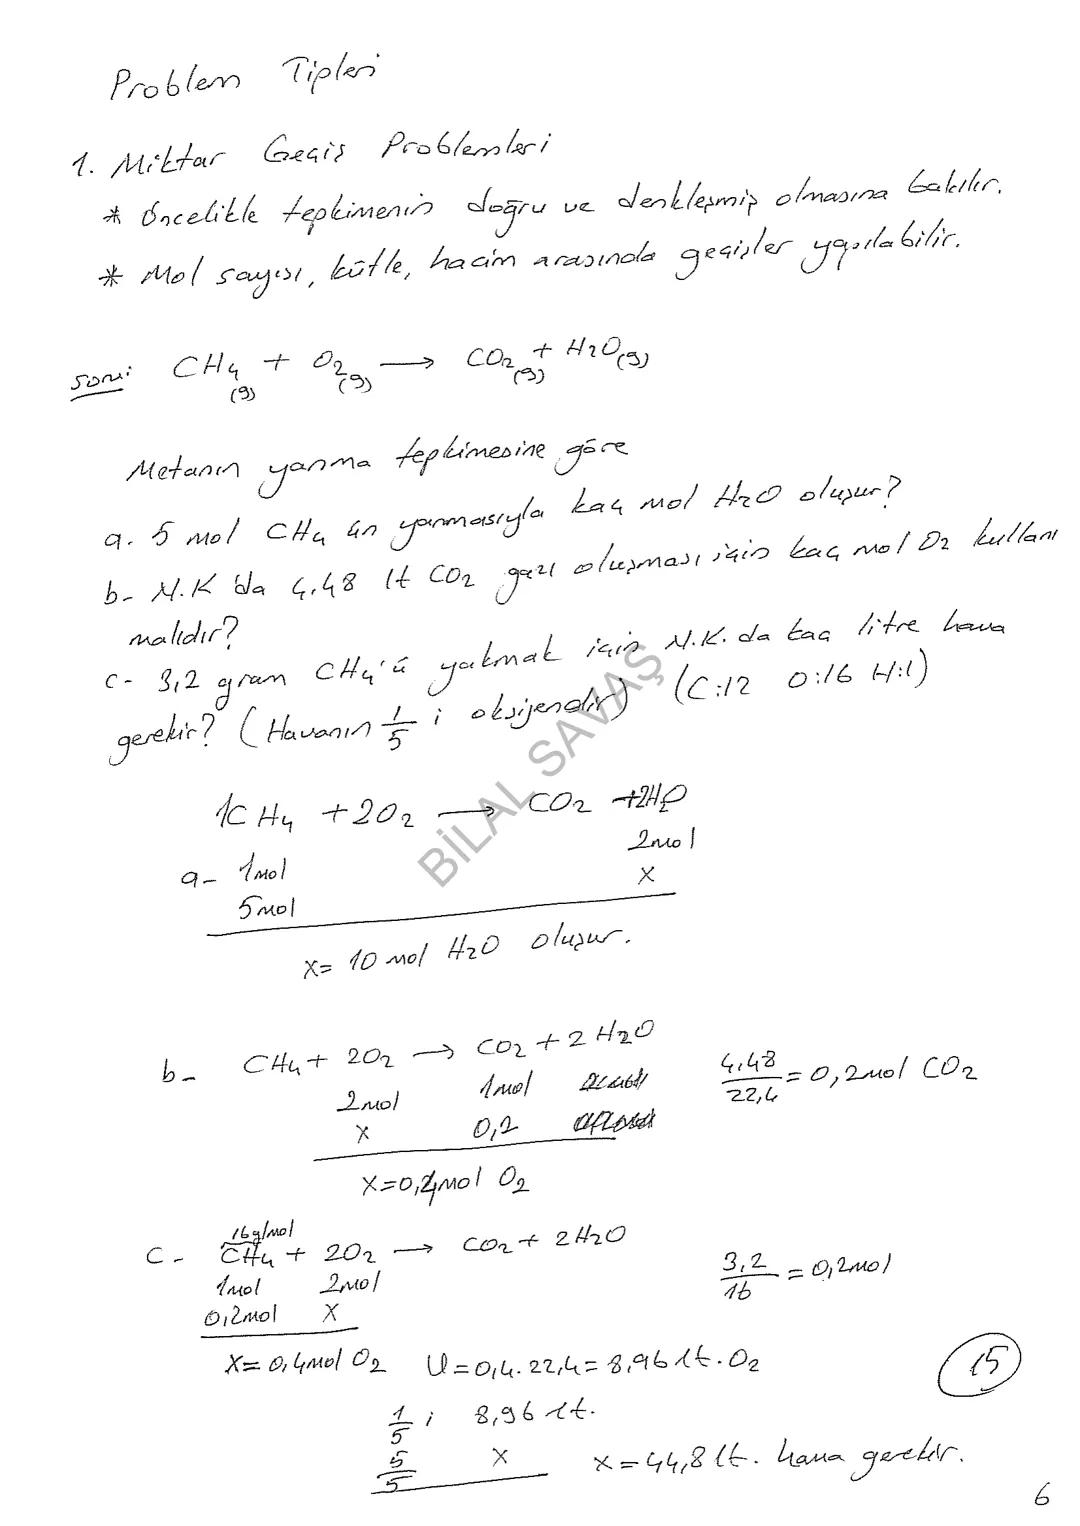 Problem Tipleri
1. Miktar Geçiş Problemleri
* Öncelikle tepkimenin doğru ve denkleşmiş olmasına bakılır.
* Mol sayısı, kütle, hacim arasında geçişler yapılabilir.
soru: CH4(g) + O2(g) → CO2(g) + H2O(g)
Metanın yanma tepkimesine göre
a. 5 mol CH4 ün yanmasıyla kaç mol H2O oluşur?
b- N.K 'da 4,48 lt CO2 gazı oluşması için kaç mol O2 kullanı
malıdır?
c- 3,2 gram CH4'ü yakmak için N.K. da kaç litre hava
gerekir? (Havanın 1/5 i oksijendir) (C:12 O:16 H:1)
1CH4 + 2O2 → CO2 + 2H2O
a- 1mol 2mol
5mol x
x= 10 mol H2O oluşur.
b- CH4 + 2O2 → CO2 + 2H2O 4,48/22,4 = 0,2mol CO2
2mol 1mol
x 0,2
x=0,4mol O2
16g/mol
c- CH4 + 2O2 → CO2 + 2H2O 3,2/16 = 0,2mol
1mol 2mol
0,2mol x
x= 0,4mol O2 V=0,4.22,4=8,96 lt.O2
15
1/5 i 8,96 lt.
5/5 x x=44,8 lt. hava gerekir.
6
BİLAL SAVAŞ